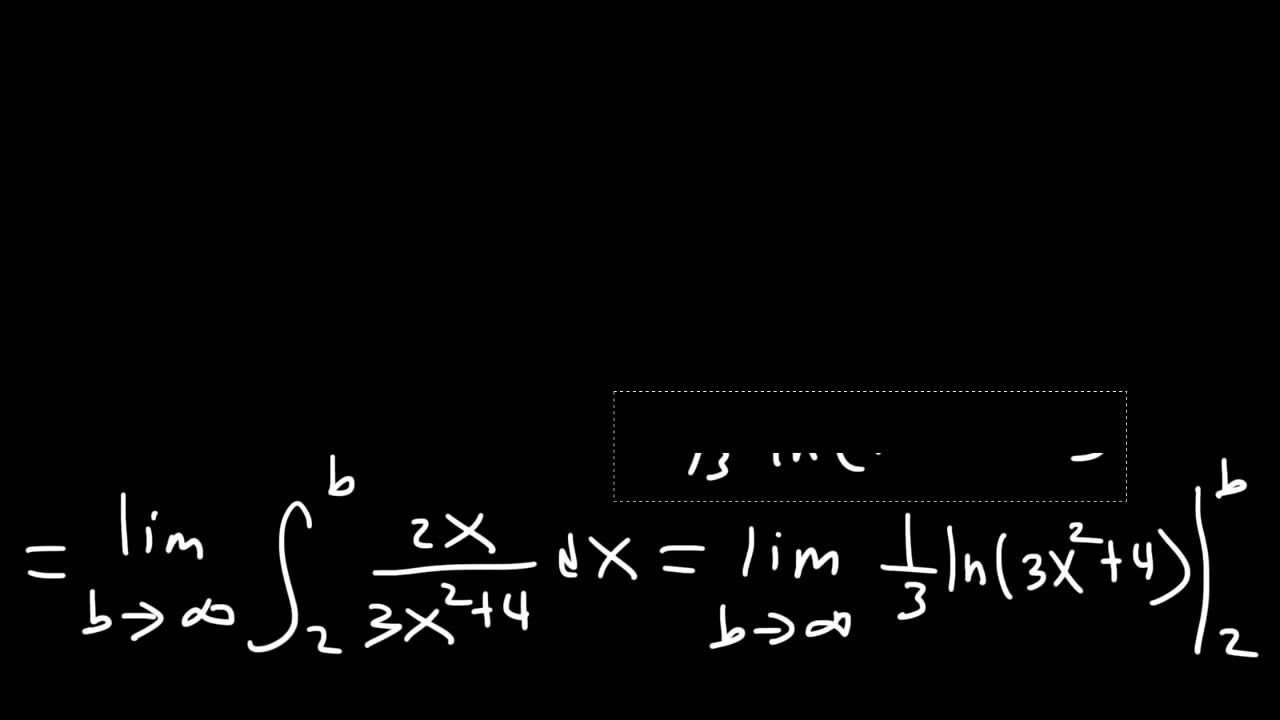 = lim b→∞ ∫₂ᵇ 2x/(3x²+4) dx = lim b→∞ 1/3 ln(3x²+4) |₂ᵇ